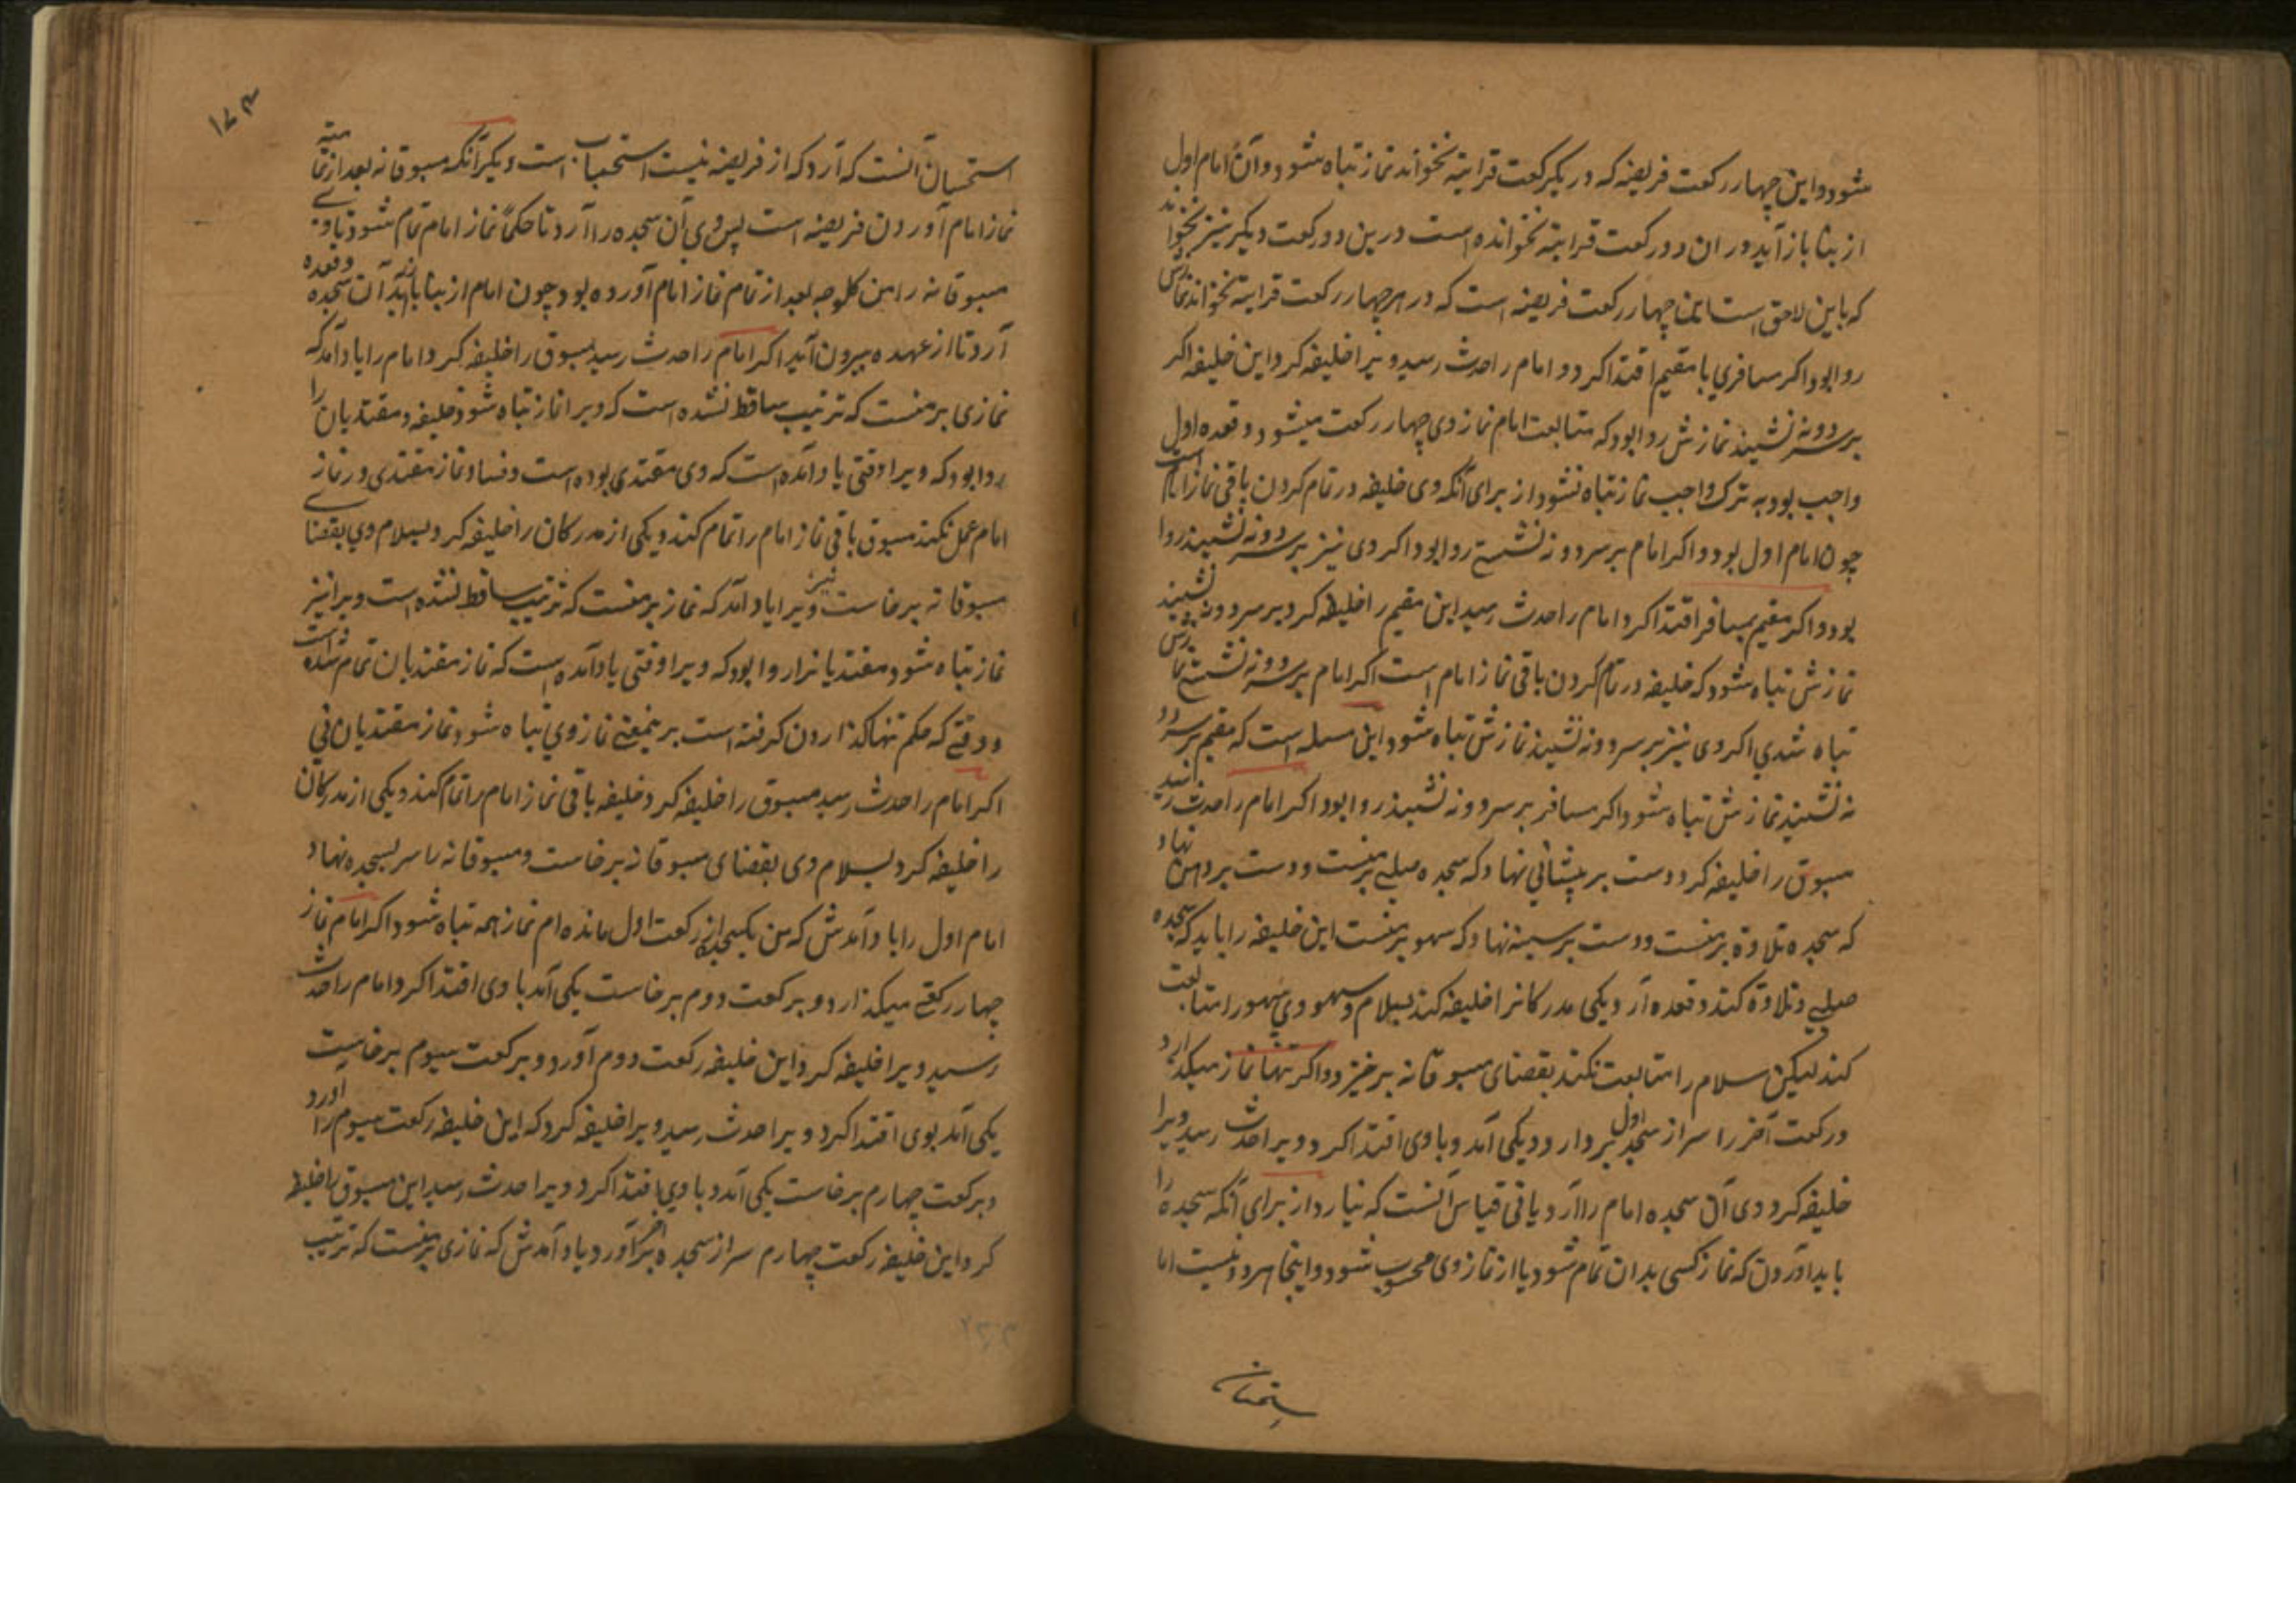 شود و این چهار رکعت فریضه که در یکرکعت قراءیة نخواند نماز تباه شود و آن امام اول
از بنا باز آید در ان دو رکعت قراءیة نخوانده است درین دو رکعت دیگر نیز نخواند
که باین لاحق است چهار رکعت فریضه است که در هر چهار رکعت قراءیة نخواند نمازش
روا بود اکر مسافری با مقیم اقتدا کرد و امام را حدث رسید ویرا خلیفه کرد این خلیفه اکر
بر سر دو نه نشیند نمازش روا بود که متابعت امام نماز وی چهار رکعت میشود و قعده اول
واجب بود به ترک واجب نماز تباه نشود از برای آنکه وی خلیفه در تمام کردن باقی نماز امام است
چون امام اول بود و اکر امام بر سر دو نه نشستی روا بود اکر وی نیز بر سر دو نه نشیند روا
بود و اکر مقیم بمسافر اقتدا کرد امام را حدث رسید این مقیم را خلیفه کرد بر سر دو نه نشیند
نمازش تباه شود که خلیفه در تمام کردن باقی نماز امام است اکر امام بر سر دو نه نشستی نمازش
تباه شدی اکر وی نیز بر سر دو نه نشیند نمازش تباه شود این مسله است که مقیم بر سر دو
نه نشیند نمازش تباه شود اکر مسافر بر سر دو نه نشیند روا بود اکر امام را حدث رسید
مسبوق را خلیفه کرد دست بر پیشانی نهاد که سجده صلبی برمنست و دست بر دهن نهاد
که سجده تلاوة برمنست و دست بر سینه نهاد که سهو برمنست این خلیفه را باید که سجده
صلبی و تلاوة کند و قعده آرد و یکی مدرکانرا خلیفه کند بسلام و سهو وی سهو را متابعت
کند لیکن سلام را متابعت نکند بقضای مسبوقانه برخیزد و اکر تنها نماز میکذارد
در رکعت آخر را سر از سجده اول بردارد و یکی آمد و باوی اقتدا کرد و ویرا حدث رسید ویرا
خلیفه کرد وی آن سجده امام را آرد یا نی قیاس آنست که نیارد از برای آنکه سجده را
باید آوردن که نماز کسی بدان تمام شود یا از نماز وی محسوب شود و اینجا هر دو نیست اما
استحسان
۱۷۳
استحسان آنست که آرد که از فریضه نیست استحباب است دیکر آنکه مسبوقانه بعد از
نماز امام آوردن فریضه است پس وی آن سجده را آرد تا حکماً نماز امام تمام شود تا وی
مسبوقانه را بعد از تمام نماز امام آورده بود چون امام از بنا باز آید آن سجده و قعده
آرد تا از عهده بیرون آید اکر امام را حدث رسید مسبوق را خلیفه کرد امام را یاد آمد که
نمازی برمنست که ترتیب ساقط نشده است که ویرا نماز تباه شود خلیفه و مقتدیان را
روا بود که ویرا وقتی یاد آمده است که وی مقتدی بوده است و فساد نماز مقتدی در نماز
امام عمل نکند مسبوق باقی نماز امام را تمام کند و یکی از مدرکان را خلیفه کرد بسلام وی بقضای
مسبوقانه برخاست ویرا نیز یاد آمد که نماز برمنست که ترتیب ساقط نشده است ویرا نیز
نماز تباه شود مقتدیانرا روا بود که ویرا وقتی یاد آمده است که نماز مقتدیان تمام شده است
و وقتی که حکم تنها کذاردن کرفته است برینمعنی نماز وی تباه شود نماز مقتدیان نی
اکر امام را حدث رسید مسبوق را خلیفه کرد خلیفه باقی نماز امام را تمام کند و یکی از مدرکان
را خلیفه کرد بسلام وی بقضای مسبوقانه برخاست و مسبوقانه را سر بسجده نهاد
امام اول را یاد آمدش که من یکسجده از رکعت اول مانده ام نماز همه تباه شود اکر امام نماز
چهار رکعتی میکذارد و بر رکعت دوم برخاست یکی آمد باوی اقتدا کرد امام را حدث
رسید ویرا خلیفه کرد این خلیفه رکعت دوم آورد و برکعت سیوم برخاست
یکی آمد بوی اقتدا کرد ویرا حدث رسید ویرا خلیفه کرد که این خلیفه رکعت سیوم را آورد
و برکعت چهارم برخاست یکی آمد و باوی اقتدا کرد ویرا حدث رسید این مسبوق را خلیفه
کرد این خلیفه رکعت چهارم سر از سجده آورد یاد آمدش که نمازی برمنست که ترتیب
۲۳۳